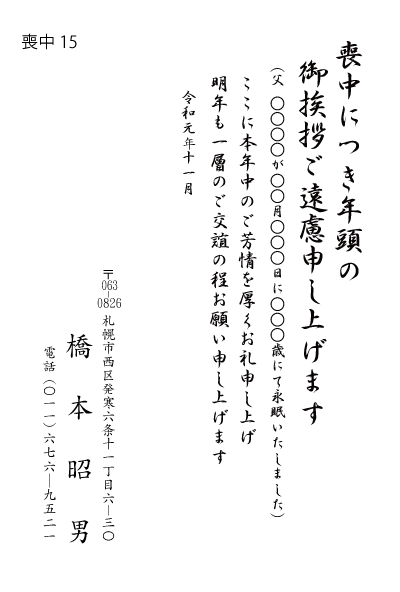 喪中 15
喪中につき年頭の
御挨拶ご遠慮申し上げます
（父　〇〇〇〇が〇〇月〇〇〇日に〇〇〇歳にて永眠いたしました）
ここに本年中のご芳情を厚くお礼申し上げ
明年も一層のご交誼の程お願い申し上げます
令和元年十一月
〒063-0826　札幌市西区発寒六条十一丁目六―三〇
橋本昭男
電話（〇一一）六七六―九五二一